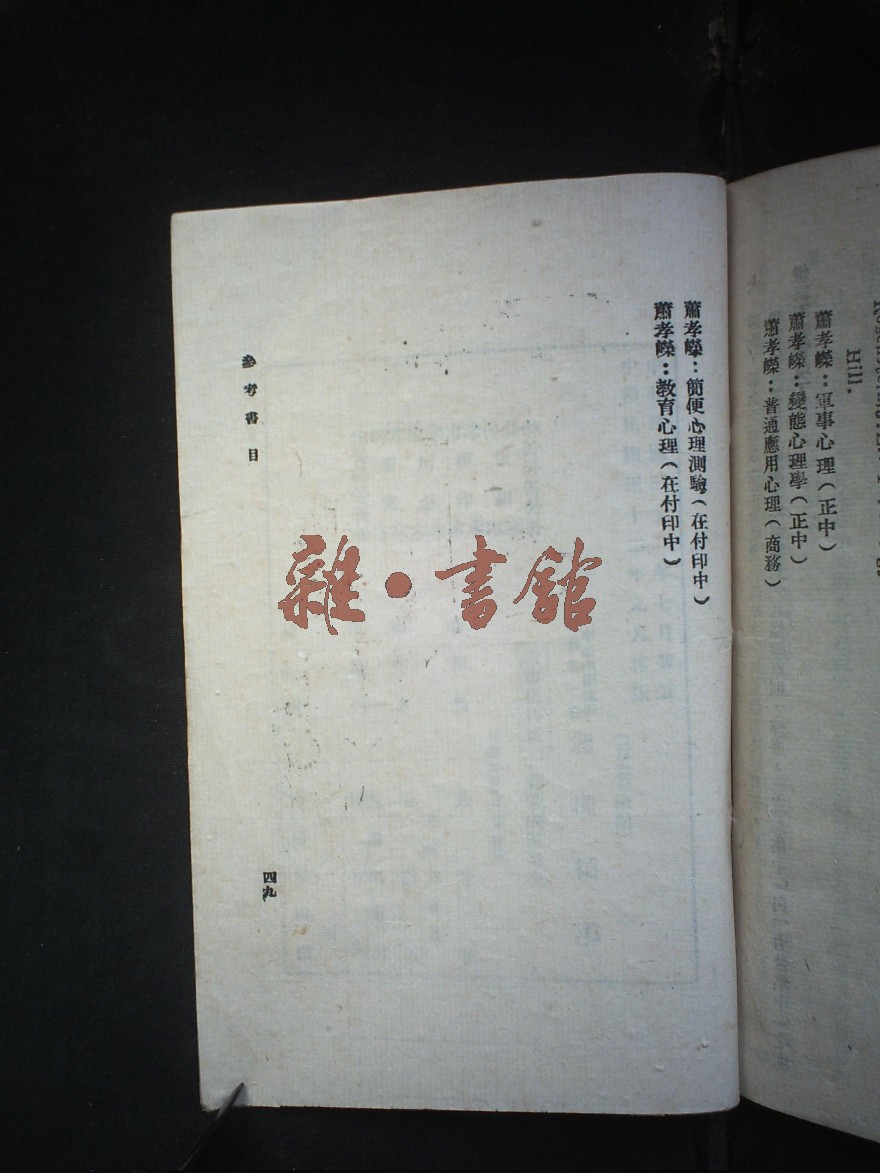 Hill.
蕭孝嶸：軍事心理（正中）
蕭孝嶸：變態心理學（正中）
蕭孝嶸：普通應用心理（商務）
蕭孝嶸：簡便心理測驗（在付印中）
蕭孝嶸：教育心理（在付印中）
參考書目
四九
雜·書館